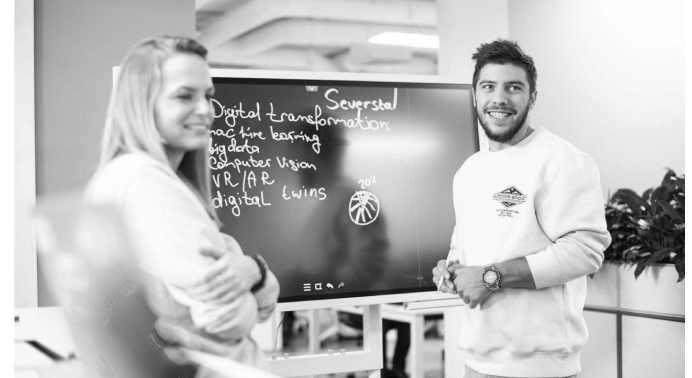 Severstal
Digital transformation:
machine learning
big data
Computer Vision
VR/AR
digital twins